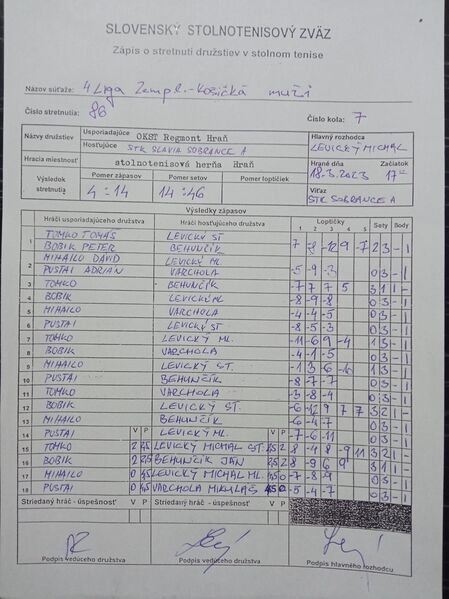 SLOVENSKÝ STOLNOTENISOVÝ ZVÄZ
Zápis o stretnutí družstiev v stolnom tenise
Názov súťaže: 4 Liga Zempl.-Košická muži
Číslo stretnutia: 86 Číslo kola: 7
Názvy družstiev Usporiadajúce OKST Regmont Hraň Hlavný rozhodca
Hosťujúce STK SLAVIA SOBRANCE A LEVICKÝ MICHAL
Hracia miestnosť stolnotenisová herňa Hraň Hrané dňa Začiatok
Výsledok stretnutia Pomer zápasov Pomer setov Pomer loptičiek 18.3.2023 17
4:14 14:46 Víťaz
STK SOBRANCE A
Výsledky zápasov
Hráči usporiadajúceho družstva Hráči hosťujúceho družstva Loptičky Sety Body
1 2 3 4 5
1 TOMKO TOMÁŠ LEVICKÝ ST
BOBIK PETER BEHUNČIK 7 -8 -12 9 -7 2 3 - 1
2 MIHAILO DAVID LEVICKÝ ML
PUSTAI ADRIÁN VARCHOLA -5 -9 -3 0 3 - 1
3 TOMKO BEHUNČIK -7 7 7 5 3 1 1 -
4 BOBIK LEVICKÝ ML -8 -9 -8 0 3 - 1
5 MIHAILO VARCHOLA -4 -4 -5 0 3 - 1
6 PUSTAI LEVICKÝ ST -8 -5 -3 0 3 - 1
7 TOMKO LEVICKÝ ML. -11 -6 9 -4 1 3 - 1
8 BOBIK VARCHOLA -4 -1 -5 0 3 - 1
9 MIHAILO LEVICKÝ ST.
10 PUSTAI BEHUNČIK -8 -7 -7 0 3 - 1
11 TOMKO VARCHOLA -3 -8 -4 0 3 - 1
12 BOBIK LEVICKÝ ST. 3 2 1 -
13 MIHAILO BEHUNČIK -6 -4 -7 0 3 - 1
14 PUSTAI V P LEVICKÝ ML. V P -7 -6 -11 0 3 - 1
15 TOMKO LEVICKÝ MICHAL ST. 8 -4 8 -9 11 3 2 1 -
16 BOBIK BEHUNČIK JÁN
17 MIHAILO LEVICKÝ MICHAL ML. -7 -8 -9 0 3 - 1
18 PUSTAI VARCHOLA MIKULÁŠ -5 -4 -7 0 3 - 1
Striedaný hráč - úspešnosť V P Striedaný hráč - úspešnosť V P
Podpis vedúceho družstva Podpis vedúceho družstva Podpis hlavného rozhodcu